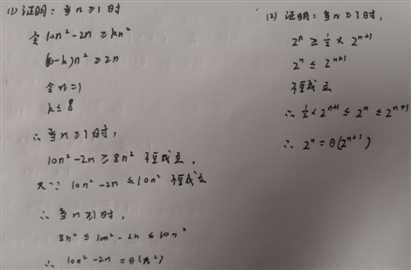 (1) 证明：当 n ≥ 1 时
令 10n² - 2n ≥ kn²
(10-k)n² ≥ 2n
令 n=1
k ≤ 8
∴ 当 n ≥ 1 时，
10n² - 2n ≥ 8n² 恒成立，
又∵ 10n² - 2n ≤ 10n² 恒成立
∴ 当 n ≥ 1 时，
8n² ≤ 10n² - 2n ≤ 10n²
∴ 10n² - 2n = θ(n²)
(2) 证明：当 n ≥ 1 时，
2ⁿ ≥ ½ × 2ⁿ⁺¹
2ⁿ ≤ 2ⁿ⁺¹
恒成立
∴ ½ × 2ⁿ⁺¹ ≤ 2ⁿ ≤ 2ⁿ⁺¹
∴ 2ⁿ = θ(2ⁿ⁺¹)